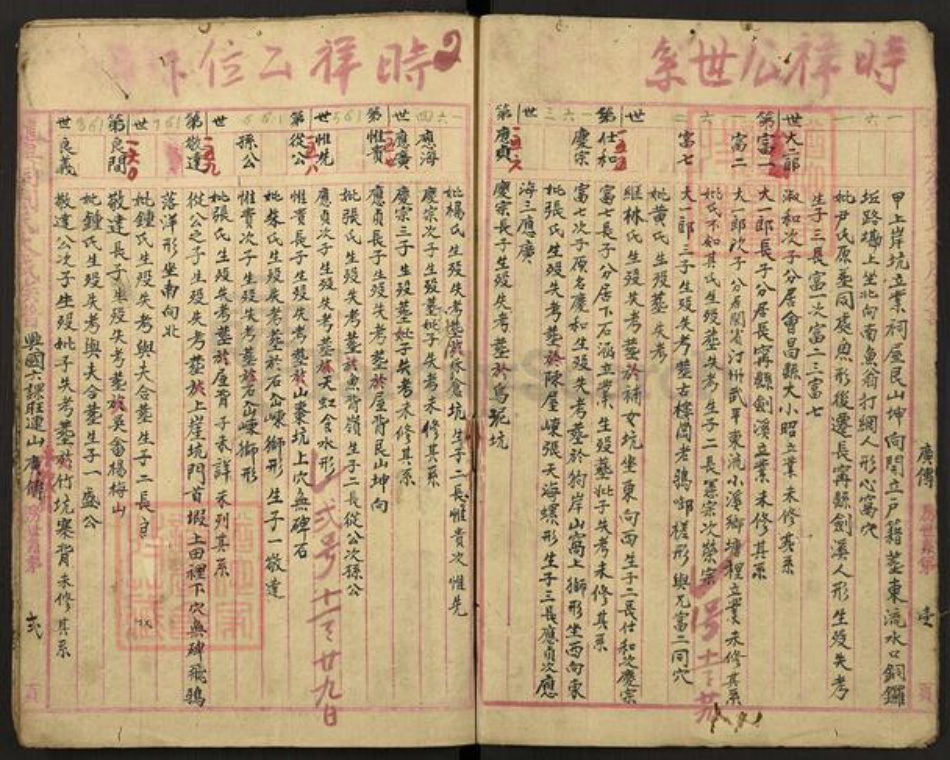 時祥公世系
甲上岸坑立業祠屋艮山坤向開立戶籍塟東流水口銅鑼
坵路塝上坐北向南魚翁打網人形心窩穴
妣尹氏原塟同處魚形後遷長寧縣劍溪人形生歿失考
生子三長富一次富二三富七
世大二郎
淑和次子分居會昌縣大小昭立業未修其系
第富一
大一郎長子分居長寧縣劍溪立業未修其系
富二
大一郎次子分居閩省汀州武平東流小溪鄉塘裡立業未修其系
妣氏不知其氏生歿塟失考生子二長憲宗次榮宗
富七
大一郎三子生歿失考塟古樓崗老鴉啣槎形與兄富二同穴
妣黃氏生歿塟失考
繼林氏生歿失考塟於補女坑坐東向西生子二長仕和次慶宗
第仕和
富七長子分居下石涵立業生歿塟妣子失考未修其系
慶宗
富七次子原名慶和生歿失考塟於狗岸山窩上獅形坐西向東
妣張氏生歿失考塟於陳屋崠張天海螺形生子三長應貞次應
海三應廣
第應貞
慶宗長子生歿失考塟於烏泥坑
廣傳
壹
頁
2
時祥公位下
妣楊氏生歿失考塟於林倉坑生子二長惟貴次惟先
應海
慶宗次子生歿塟妣子失考未修其系
世應廣
慶宗三子生歿塟妣子失考未修其系
第惟貴
應貞長子生歿失考塟於屋背艮山坤向
妣張氏生歿失考塟於魚背嶺生子二長從公次孫公
世惟先
應貞次子生歿失考塟於天虹食水形
第從公
惟貴長子生歿失考塟於山棗坑上穴無碑石
妣朱氏生歿失考塟於石峦崠獅形生子一敬達
孫公
惟貴次子生歿失考塟於石峦崠獅形
世
妣張氏生歿失考塟於屋背子未詳未列其系
第敬達
從公之子生歿失考塟於上崖坑門首塅上田裡下穴無碑飛鴉
落洋形坐南向北
世
妣鍾氏生歿失考與夫合塟生子二長良
第良間
敬達長子生歿失考塟於吳畲楊梅山
妣鍾氏生歿失考與夫合塟生子一盛公
世良義
敬達公次子生歿妣子失考塟於竹坑寨背未修其系
興國六課旺運山廣傳
弍
頁